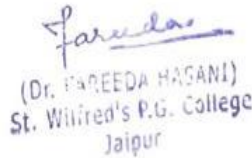 Fareeda
(Dr. FAREEDA HASANI)
St. Wilfred's P.G. College
Jaipur